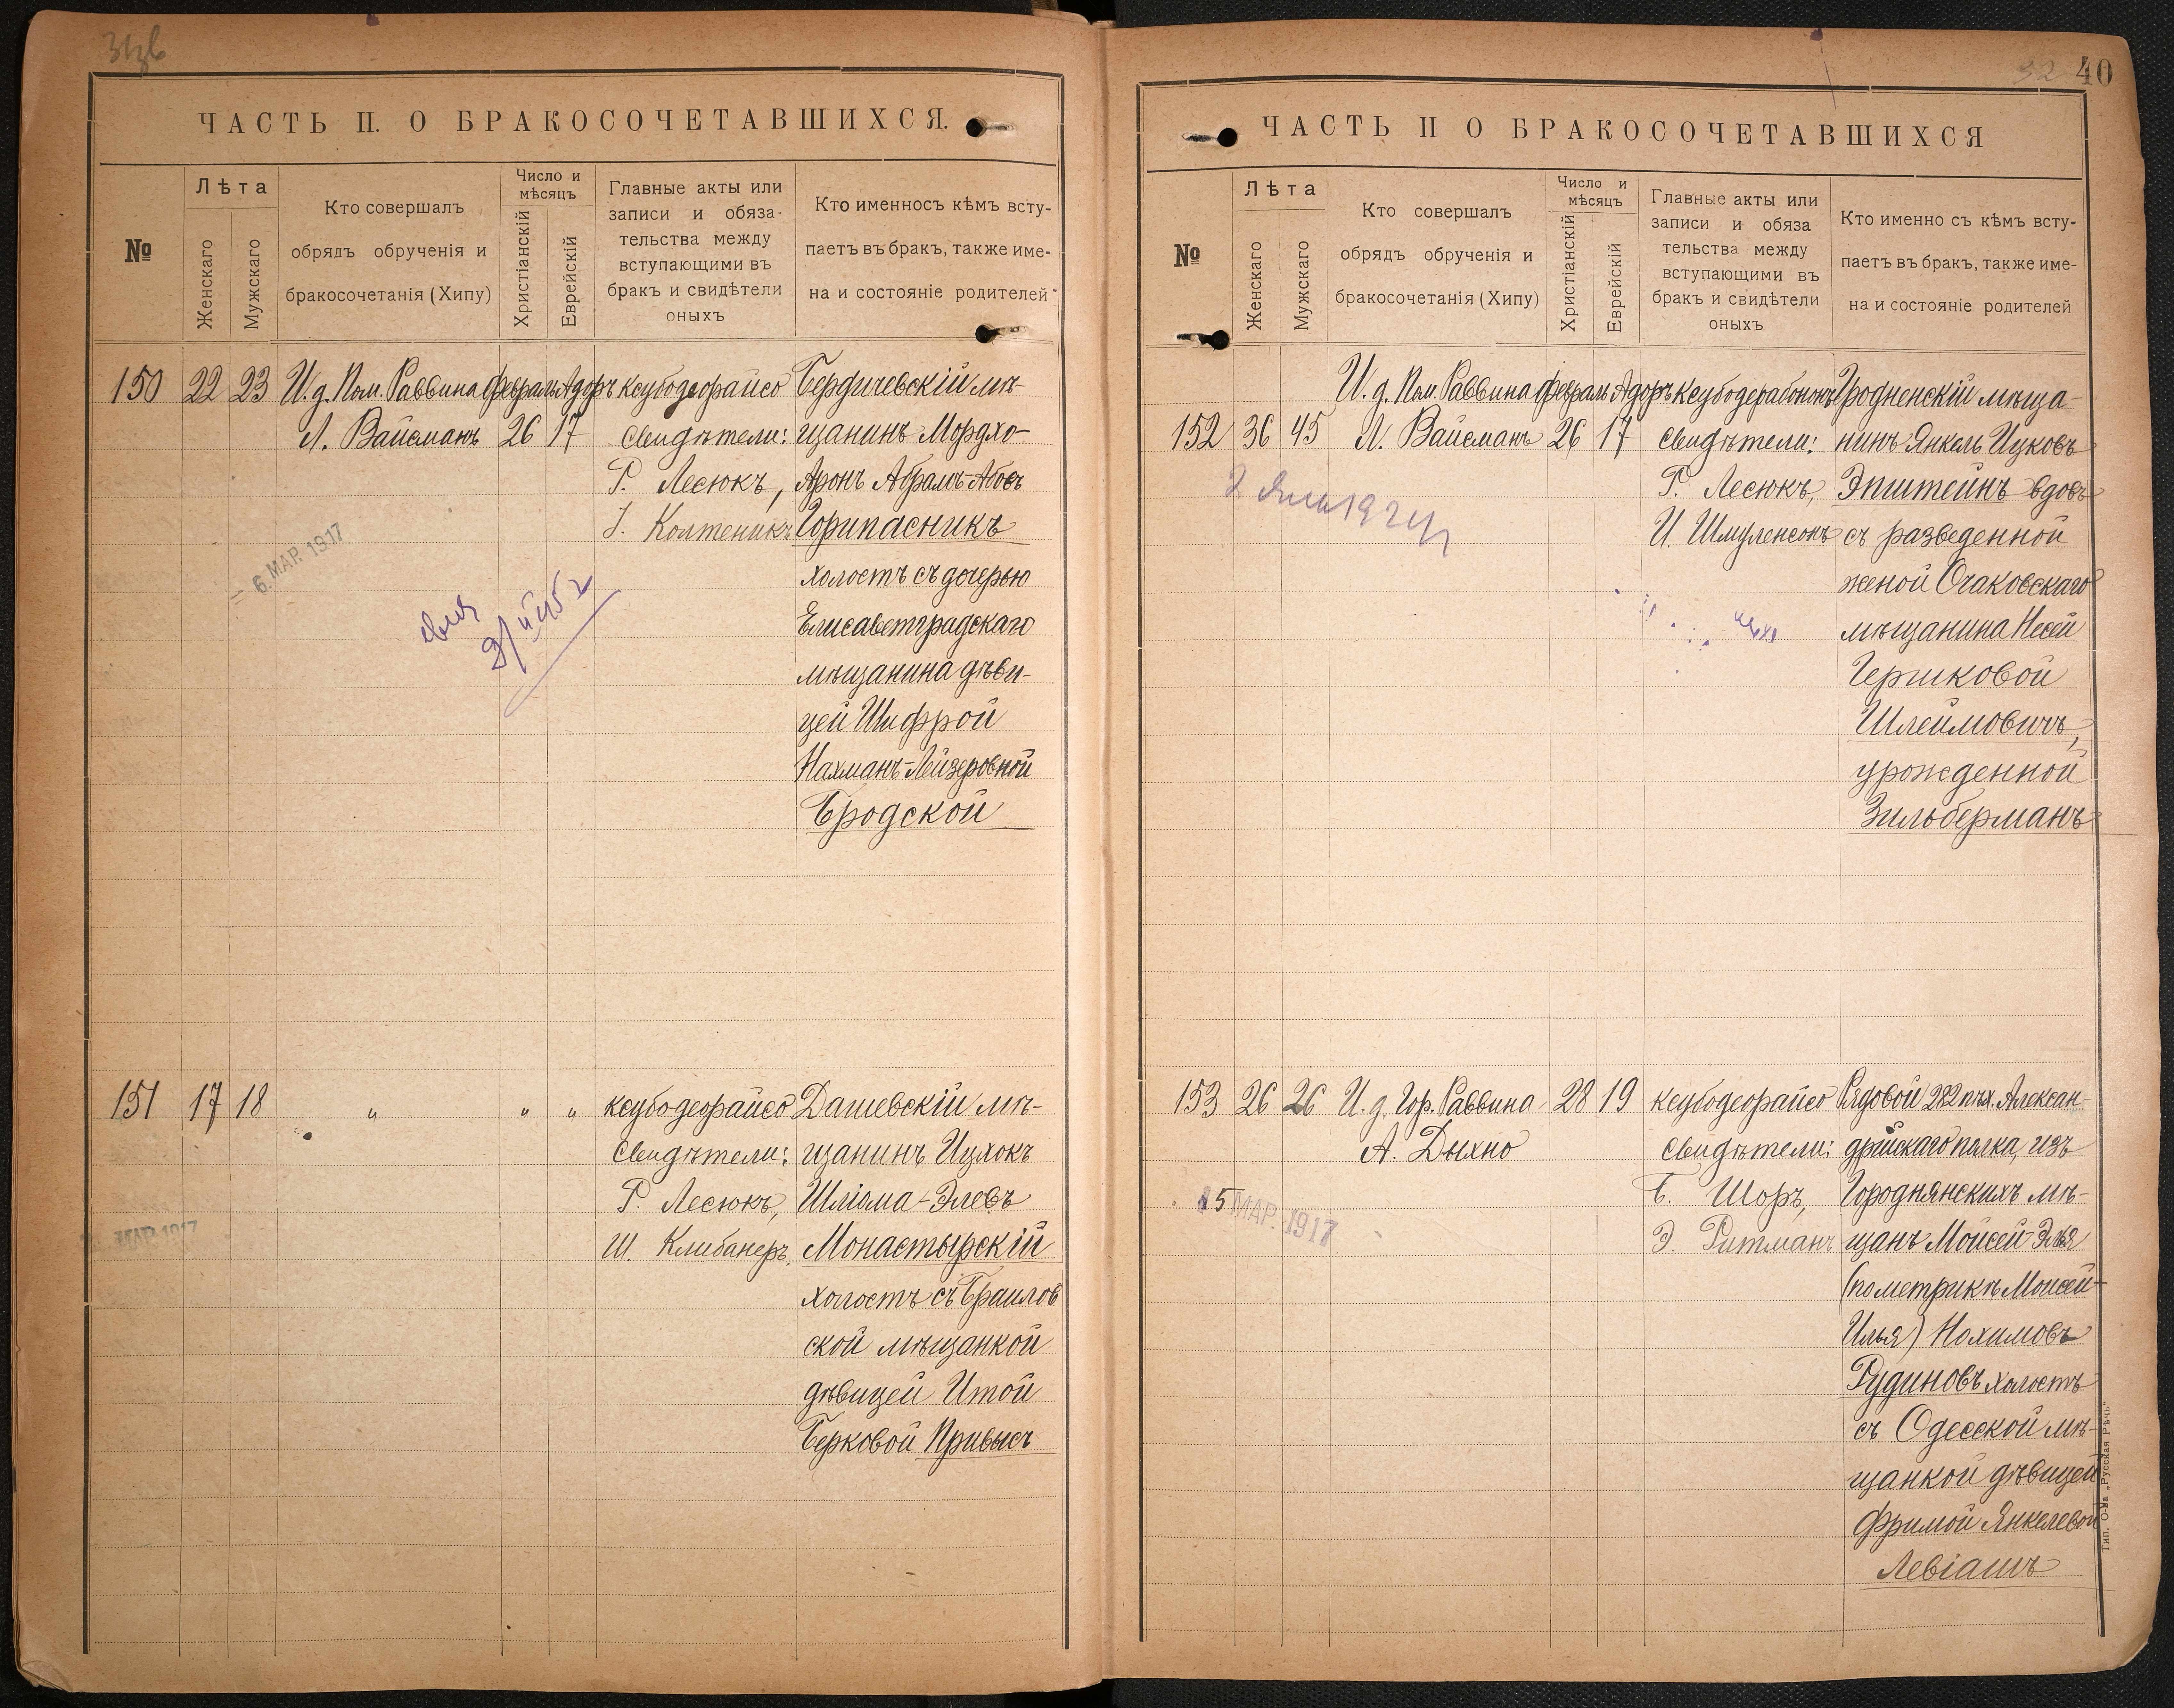 ЧАСТЬ II. О БРАКОСОЧЕТАВШИХСЯ.
№
Лѣта
Женскаго
Мужскаго
Кто совершалъ
обрядъ обрученія и
бракосочетанія (Хипу)
Число и
мѣсяцъ
Христіанскій
Еврейскій
Главные акты или
записи и обяза-
тельства между
вступающими въ
бракъ и свидѣтели
оныхъ
Кто именносъ кѣмъ всту-
паетъ въ бракъ, также име-
на и состояніе родителей
150 22 23 И. д. Пом. Раввина Февраль Адоръ ксубодеорайсо Бердичевскій мѣ-
Л. Вайсманъ 26 17 Свидѣтели: щанинъ Мордхо-
Г. Лесюкъ, Аронъ Абрамъ-Абовъ
Колтеникъ Горипасникъ
6. МАР. 1917
холостъ съ дочерью
Елисаветградскаго
мѣщанина дѣви-
цей Шифрой
Нахманъ-Лейзеровной
Бродской
151 17 18 " " " ксубодеорайсо Дашевскій мѣ-
Свидѣтели: щанинъ Ицхокъ
Г. Лесюкъ, Шліома-Элевъ
Ш. Клибанеръ, Монастырскій
МАР. 1917
холостъ съ Браилов
ской мѣщанкой
дѣвицей Итой
Берковой Привысъ
40
ЧАСТЬ II О БРАКОСОЧЕТАВШИХСЯ
№
Лѣта
Женскаго
Мужскаго
Кто совершалъ
обрядъ обрученія и
бракосочетанія (Хипу)
Число и
мѣсяцъ
Христіанскій
Еврейскій
Главные акты или
записи и обяза
тельства между
вступающими въ
бракъ и свидѣтели
оныхъ
Кто именно съ кѣмъ всту-
паетъ въ бракъ, также име-
на и состояніе родителей
И. д. Пом. Раввина Февраль Адоръ Гродненскій мѣща-
152 36 45 Л. Вайсманъ 26 17 Свидѣтели: нинъ Янкель Ицковъ
Г. Лесюкъ, Эпштейнъ вдовъ
И. Шмуленсонъ съ разведенной
женой Очаковскаго
мѣщанина Несей
Гершковой
Шлеймовичъ,
урожденной
Зильберманъ
153 26 26 И. д. Гор. Раввина 28 19 ксубодеорайсо Рядовой 282 пѣх. Алексан-
А. Дыхно Свидѣтели: дрійскаго полка, изъ
Б. Шоръ, Городнянскихъ мѣ-
15 МАР. 1917
Э. Ритманъ щанъ Мойсей-Элья
(по метрикѣ Моисей-
Илья) Нохимовъ
Рудиновъ холостъ
съ Одесской мѣ-
щанкой дѣвицей
Фримой Янкелевой
Левіашъ
Тип. О-ва „Русская Рѣчь"